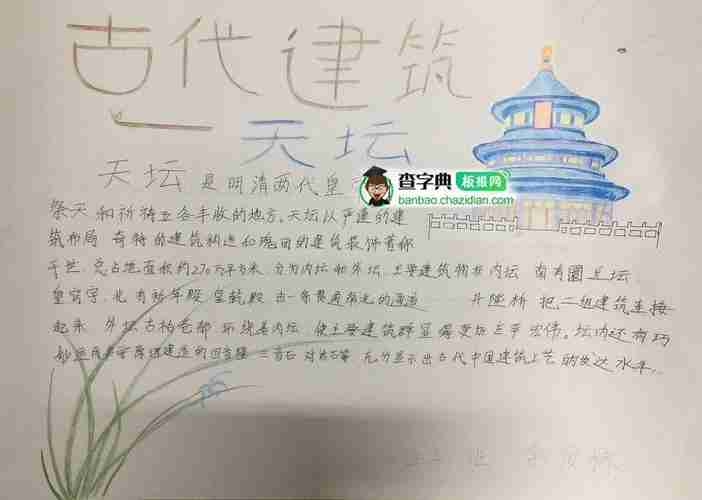 古代建筑
天坛
天坛 是明清两代皇
查字典 板报网
banbao.chazidian.com
祭天 和祈祷五谷丰收的地方。天坛以严谨的建
筑布局 奇特的建筑构造和瑰丽的建筑装饰著称
于世。总占地面积约270万平方米。分为内坛和外坛。主要建筑物在内坛 南有圜丘坛
皇穹宇。北有祈年殿 皇乾殿 由一条贯通南北的甬道 丹陛桥 把二组建筑连接
起来 外坛古柏苍郁 环绕着内坛 使主要建筑群显得更加庄严宏伟。坛内还有巧
妙运用声学原理建造的回音壁 三音石 对话石等 充分显示出古代中国建筑工艺的发达水平。